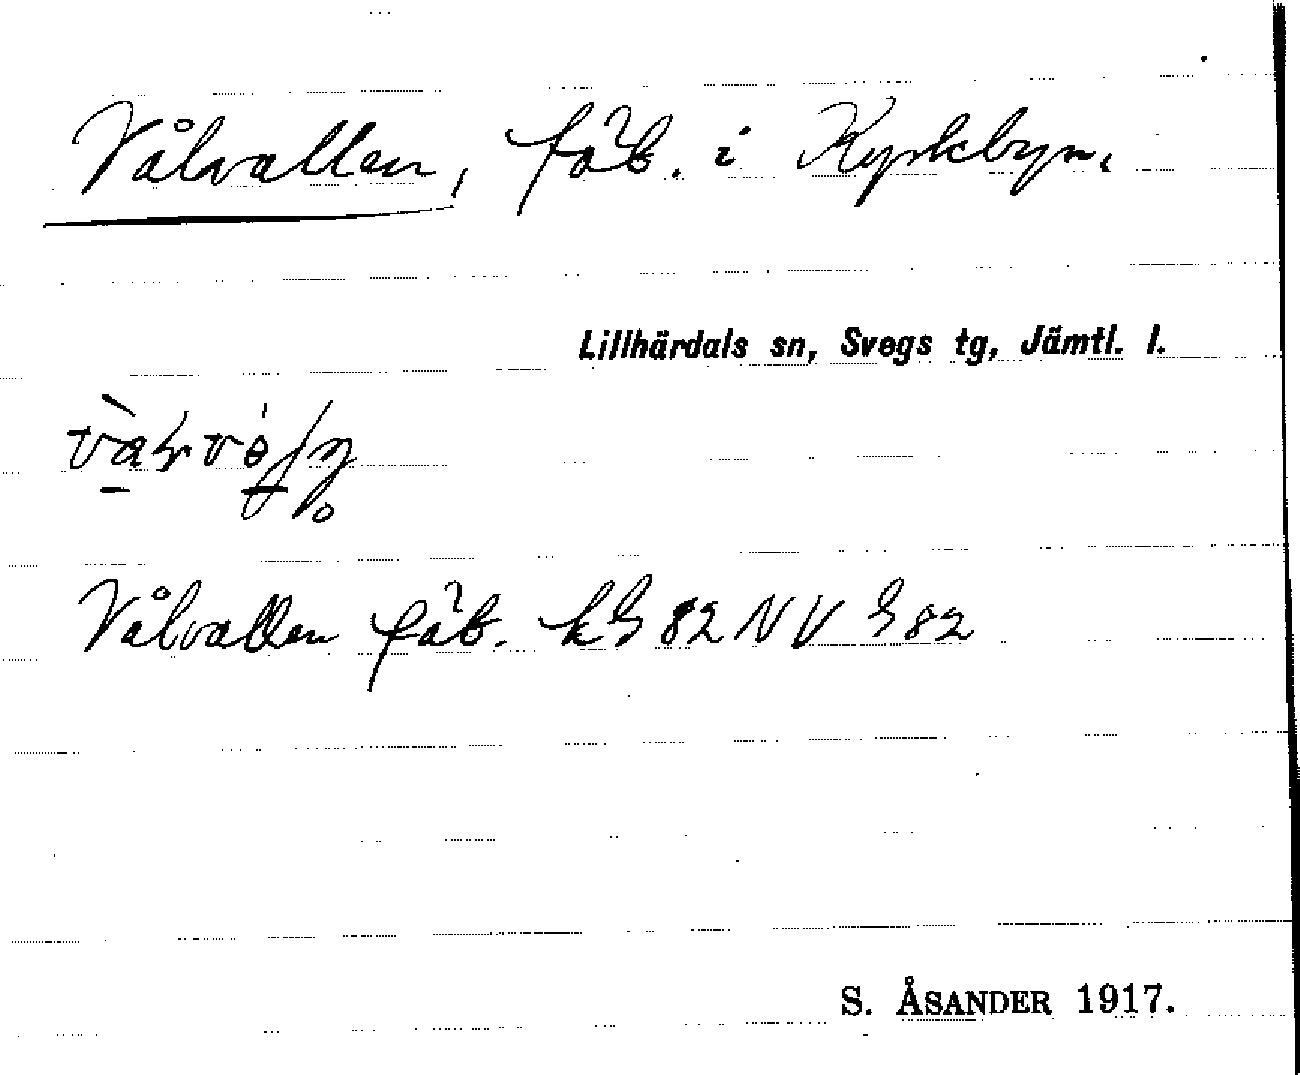 Vålvallen, fäb. i Kyrkbyn.
Lillhärdals sn, Svegs tg, Jämtl. l.
Vålvallen fäb. 82 NV 82
S. ÅSANDER 1917.